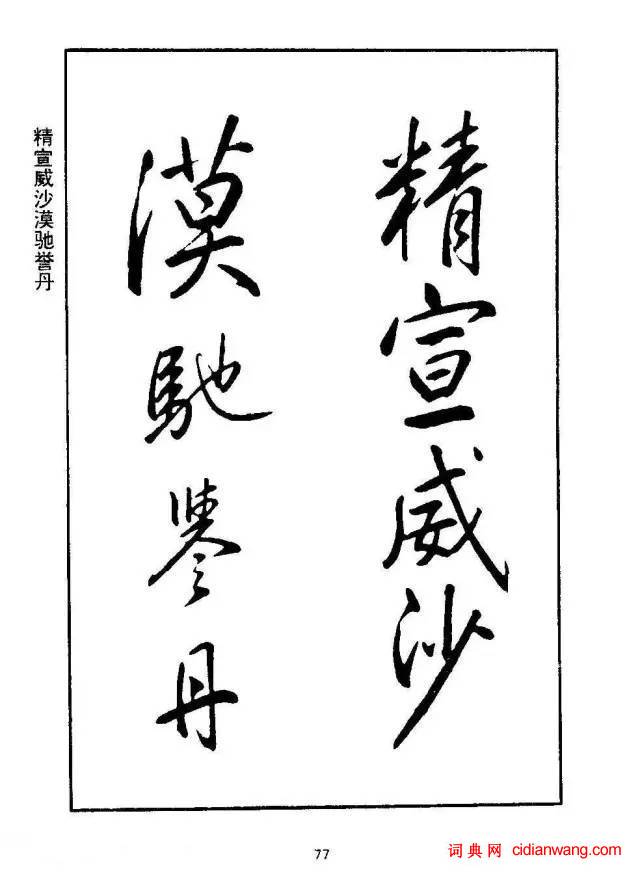 精宣威沙
漠馳譽丹
精宣威沙漠驰誉丹
77
词典网 cidianwang.com